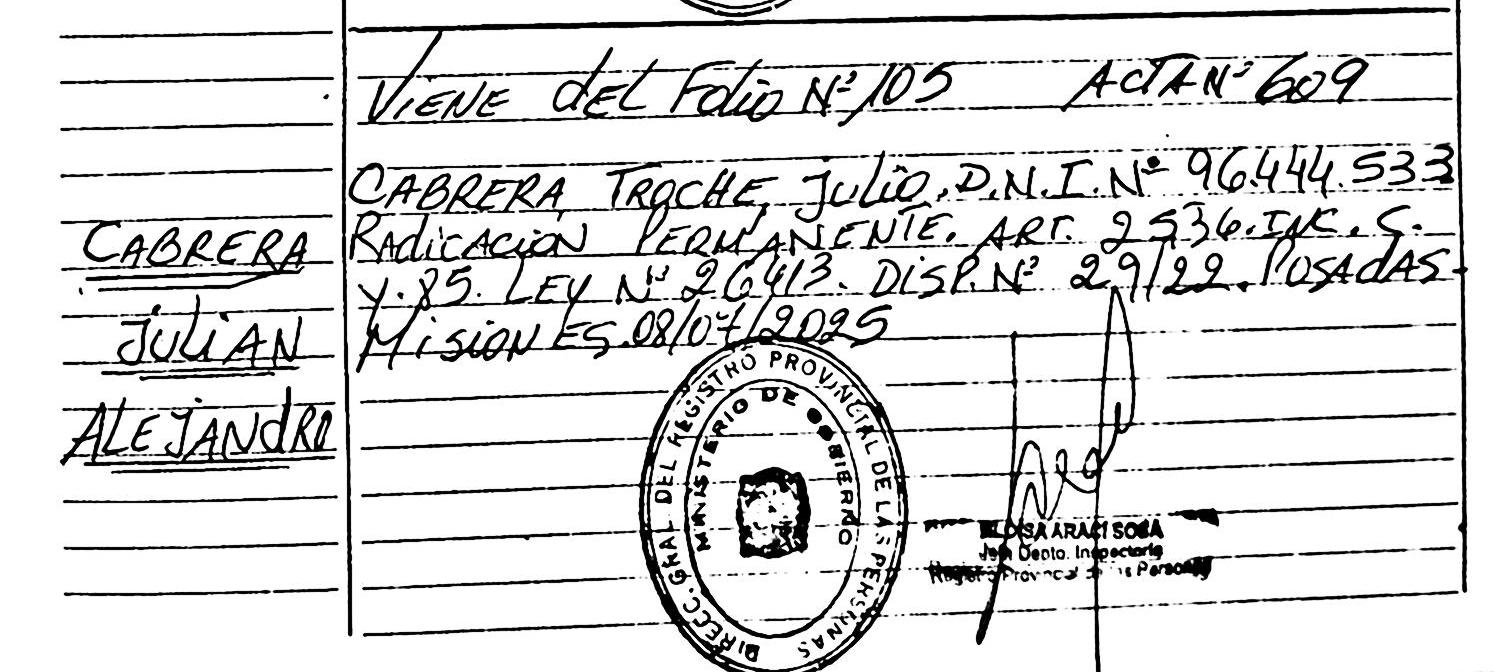 Viene del Folio Nº 105 ACTA Nº 609
CABRERA
JULIAN
ALEJANDRO
CABRERA TROCHE, Julio. D.N.I. Nº 96.444.533
Radicación PERMANENTE. ART. 2536. INC. C.
y. 85. LEY Nº 26413. DISP. Nº 29/22. POSADAS-
MISIONES. 08/07/2025
DIRECC. GRAL. DEL REGISTRO PROVINCIAL DE LAS PERSONAS
MINISTERIO DE GOBIERNO
ELOISA ARACI SOSA
Jefa Depto. Inspectoría
Registro Provincial de las Personas